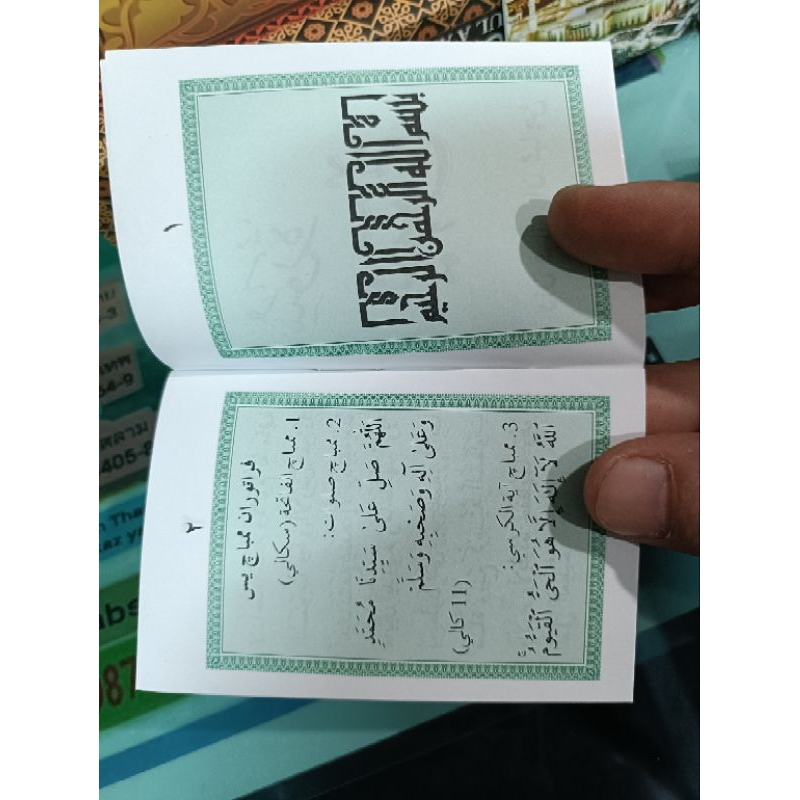 ١
بسم الله الرحمن الرحيم
٢
فراتوران ممباچ يس
1. ممباچ الفاتحة (سكالي)
2. ممباچ صلوات:
اَللّٰهُمَّ صَلِّ عَلَىٰ سَيِّدِنَا مُحَمَّدٍ
وَعَلَىٰ آلِهِ وَصَحْبِهِ وَسَلَّمَ
(11 كالي)
3. ممباچ آية الكرسي:
اَللَّهُ لَآ إِلَٰهَ إِلَّا هُوَ الْحَيُّ الْقَيُّومُ